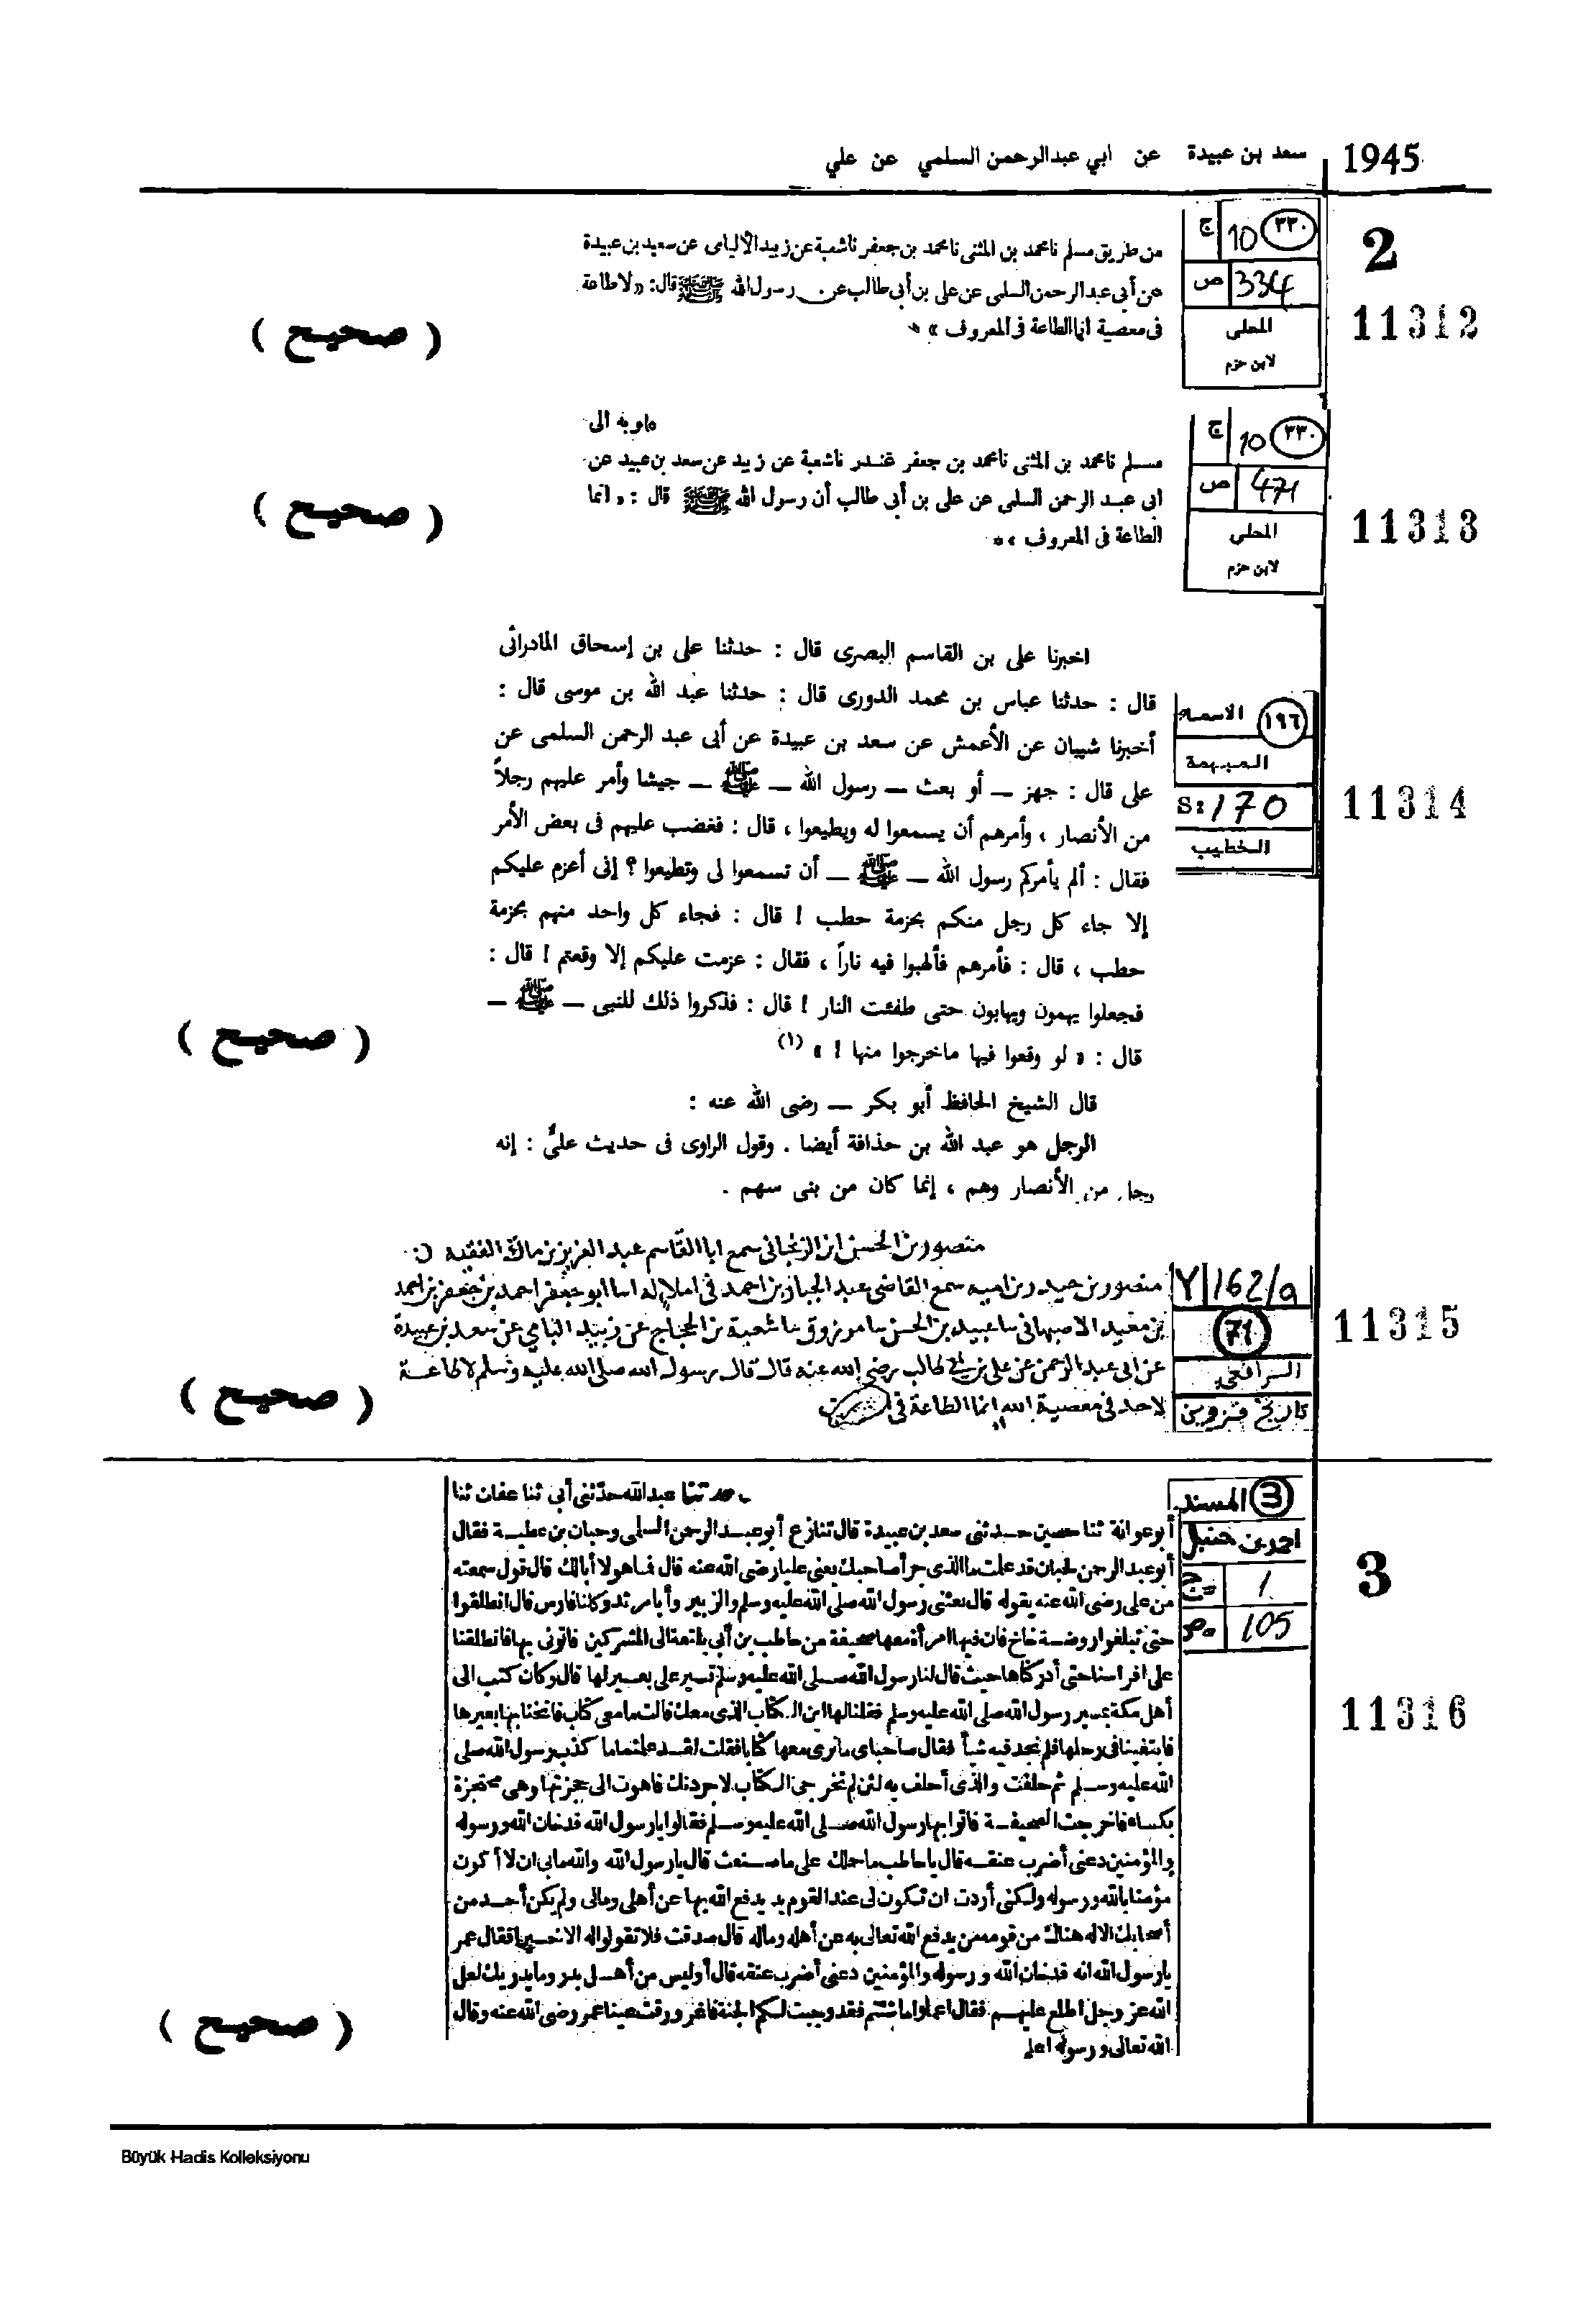 1945 سعد بن عبيدة عن ابي عبدالرحمن السلمي عن علي
2
11312
ج 10 ٣٣٠
ص 334
المحلى
لابن حزم
من طريق مسلم نا محمد بن المثنى نا محمد بن جعفر نا شعبة عن زبيد الأليامى عن سعيد بن عبيدة
عن أبى عبد الرحمن السلمى عن على بن أبى طالب عن رسول الله ﷺ قال: «لا طاعة
فى معصية انما الطاعة فى المعروف» *
( صحيح )
11313
ج 10 ٣٣٠
ص 471
المحلي
لابن حزم
وبه الى
مسلم نا محمد بن المثنى نا محمد بن جعفر غندر نا شعبة عن زبيد عن سعد بن عبيد عن
ابى عبد الرحمن السلمى عن على بن أبى طالب أن رسول الله ﷺ قال : « انما
الطاعة فى المعروف » *
( صحيح )
11314
الاسماء ١٩٦
المبهمة
S: 170
الخطيب
اخبرنا على بن القاسم البصرى قال : حدثنا على بن إسحاق المادرائى
قال : حدثنا عباس بن محمد الدورى قال : حدثنا عبد الله بن موسى قال :
أخبرنا شيبان عن الأعمش عن سعد بن عبيدة عن أبى عبد الرحمن السلمى عن
على قال : جهز — أو بعث — رسول الله — ﷺ — جيشا وأمر عليهم رجلاً
من الأنصار ، وأمرهم أن يسمعوا له ويطيعوا ، قال : فغضب عليهم فى بعض الأمر
فقال : ألم يأمركم رسول الله — ﷺ — أن تسمعوا لى وتطيعوا ؟ إنى أعزم عليكم
إلا جاء كل رجل منكم بحزمة حطب ! قال : فجاء كل واحد منهم بحزمة
حطب ، قال : فأمرهم فألهبوا فيه ناراً ، فقال : عزمت عليكم إلا وقعتم ! قال :
فجعلوا يهمون ويهابون حتى طفئت النار ! قال : فذكروا ذلك للنبى — ﷺ —
قال : « لو وقعوا فيها ماخرجوا منها ! » (١)
( صحيح )
قال الشيخ الحافظ أبو بكر — رضى الله عنه :
الرجل هو عبد الله بن حذافة أيضا . وقول الراوى فى حديث علىّ : إنه
رجل من الأنصار وهم ، إنما كان من بنى سهم .
11315
Y 162/a
71
الرافعى
تاريخ قزوين
منصور بن الحسن ابن الزنجانى سمع ابا القاسم عبد العزيز بن ماك الفقيه
منصور بن حيدر بن اميه سمع القاضى عبد الجبار بن احمد فى املا له ابو جعفر احمد بن جعفر بن احمد
بن معبد الاصبهانى عبيد بن الحسن مرزوق شعبة بن الحجاج عن زبيد اليامي عن سعد بن عبيدة
عن ابى عبد الرحمن عن على بن ابى طالب رضى الله عنه قال قال رسول الله صلى الله عليه وسلم لا طاعة
لاحد فى معصية الله انما الطاعة فى
( صحيح )
3
11316
المسند 3
احمد بن حنبل
ج 1
ص 105
حدثنا عبد الله حدثنى أبى ثنا عفان ثنا
أبو عوانة ثنا حصين حدثنى سعد بن عبيدة قال تنازع أبو عبد الرحمن السلمى وحبان بن عطية فقال
أبو عبد الرحمن لحبان قد علمت ما الذى جرأ صاحبك يعنى عليا رضى الله عنه قال فما هو لا أبالك قال قول سمعته
من على رضى الله عنه يقوله قال بعثنى رسول الله صلى الله عليه وسلم والزبير وأبا مرثد وكلنا فارس قال انطلقوا
حتى تبلغوا روضة خاخ فان فيها امرأة معها صحيفة من حاطب بن أبى بلتعة الى المشركين فاتونى بها فانطلقنا
على افراسنا حتى أدركناها حيث قال لنا رسول الله صلى الله عليه وسلم تسير على بعير لها قال وكان كتب الى
أهل مكة بمسير رسول الله صلى الله عليه وسلم فقلنا لها اين الكتاب الذى معك قالت ما معى كتاب فانخنا بها بعيرها
فابتغينا فى رحلها فلم نجد فيه شيأ فقال صاحباى ما نرى معها كتابا فقلت لقد علمتما ما كذب رسول الله صلى
الله عليه وسلم ثم حلفت والذى أحلف به لئن لم تخرجى الكتاب لاجردنك فاهوت الى حجزتها وهى محتجزة
بكساء فاخرجت الصحيفة فاتوا بها رسول الله صلى الله عليه وسلم فقالوا يا رسول الله قد خان الله ورسوله
والمؤمنين دعنى أضرب عنقه قال يا حاطب ما حملك على ما صنعت قال يا رسول الله والله ما بى ان لا أكون
مؤمنا بالله ورسوله ولكنى أردت ان تكون لى عند القوم يد يدفع الله بها عن أهلى ومالى ولم يكن أحد من
أصحابك الا له هناك من قومه من يدفع الله تعالى به عن أهله وماله قال صدقت فلا تقولوا له الا خيرا فقال عمر
يا رسول الله انه قد خان الله ورسوله والمؤمنين دعنى أضرب عنقه قال أو ليس من أهل بدر وما يدريك لعل
الله عز وجل اطلع عليهم فقال اعملوا ما شئتم فقد وجبت لكم الجنة فاغرورقت عينا عمر رضى الله عنه وقال
الله تعالى ورسوله اعلم
( صحيح )
Büyük Hadis Kolleksiyonu